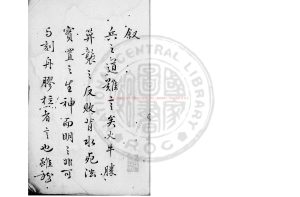 叙
兵之道難言矣火牛勝
算襲之反敗背水死法
實置之生神而明之非可
与刻舟膠柱者言也雖
CENTRAL LIBRARY